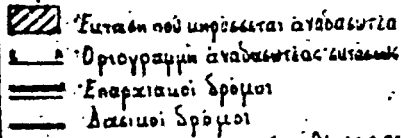 Ἔκταση ποὺ κηρύσσεται ἀναδασωτέα
Ὁριογραμμὴ ἀναδασωτέας ἐκτάσεως
Ἐπαρχιακοὶ δρόμοι
Δασικοὶ δρόμοι